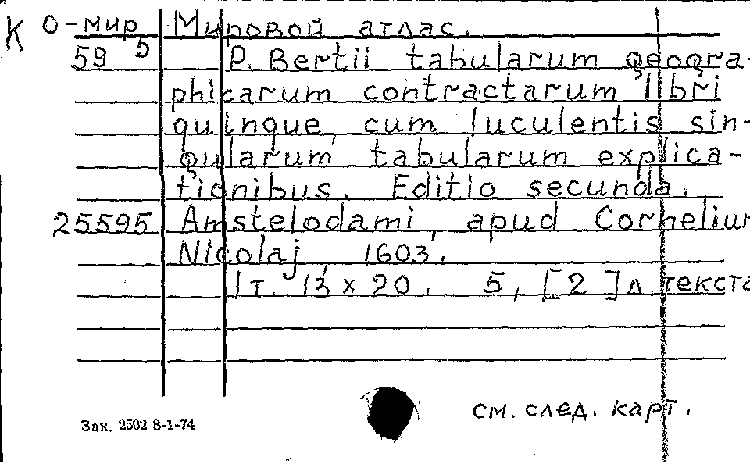 К О-мир Мировой атлас.
59 5 P. Bertii tabularum geogra-
phicarum contractarum libri
quinque, cum luculentis sin-
gularum tabularum explica-
tionibus. Editio secunda.
25595 Amstelodami, apud Cornelium
Nicolaj, 1603.
1т. 13 × 20. 5, [2] л текста
см. след. карт.
Зак. 2502 8-1-74